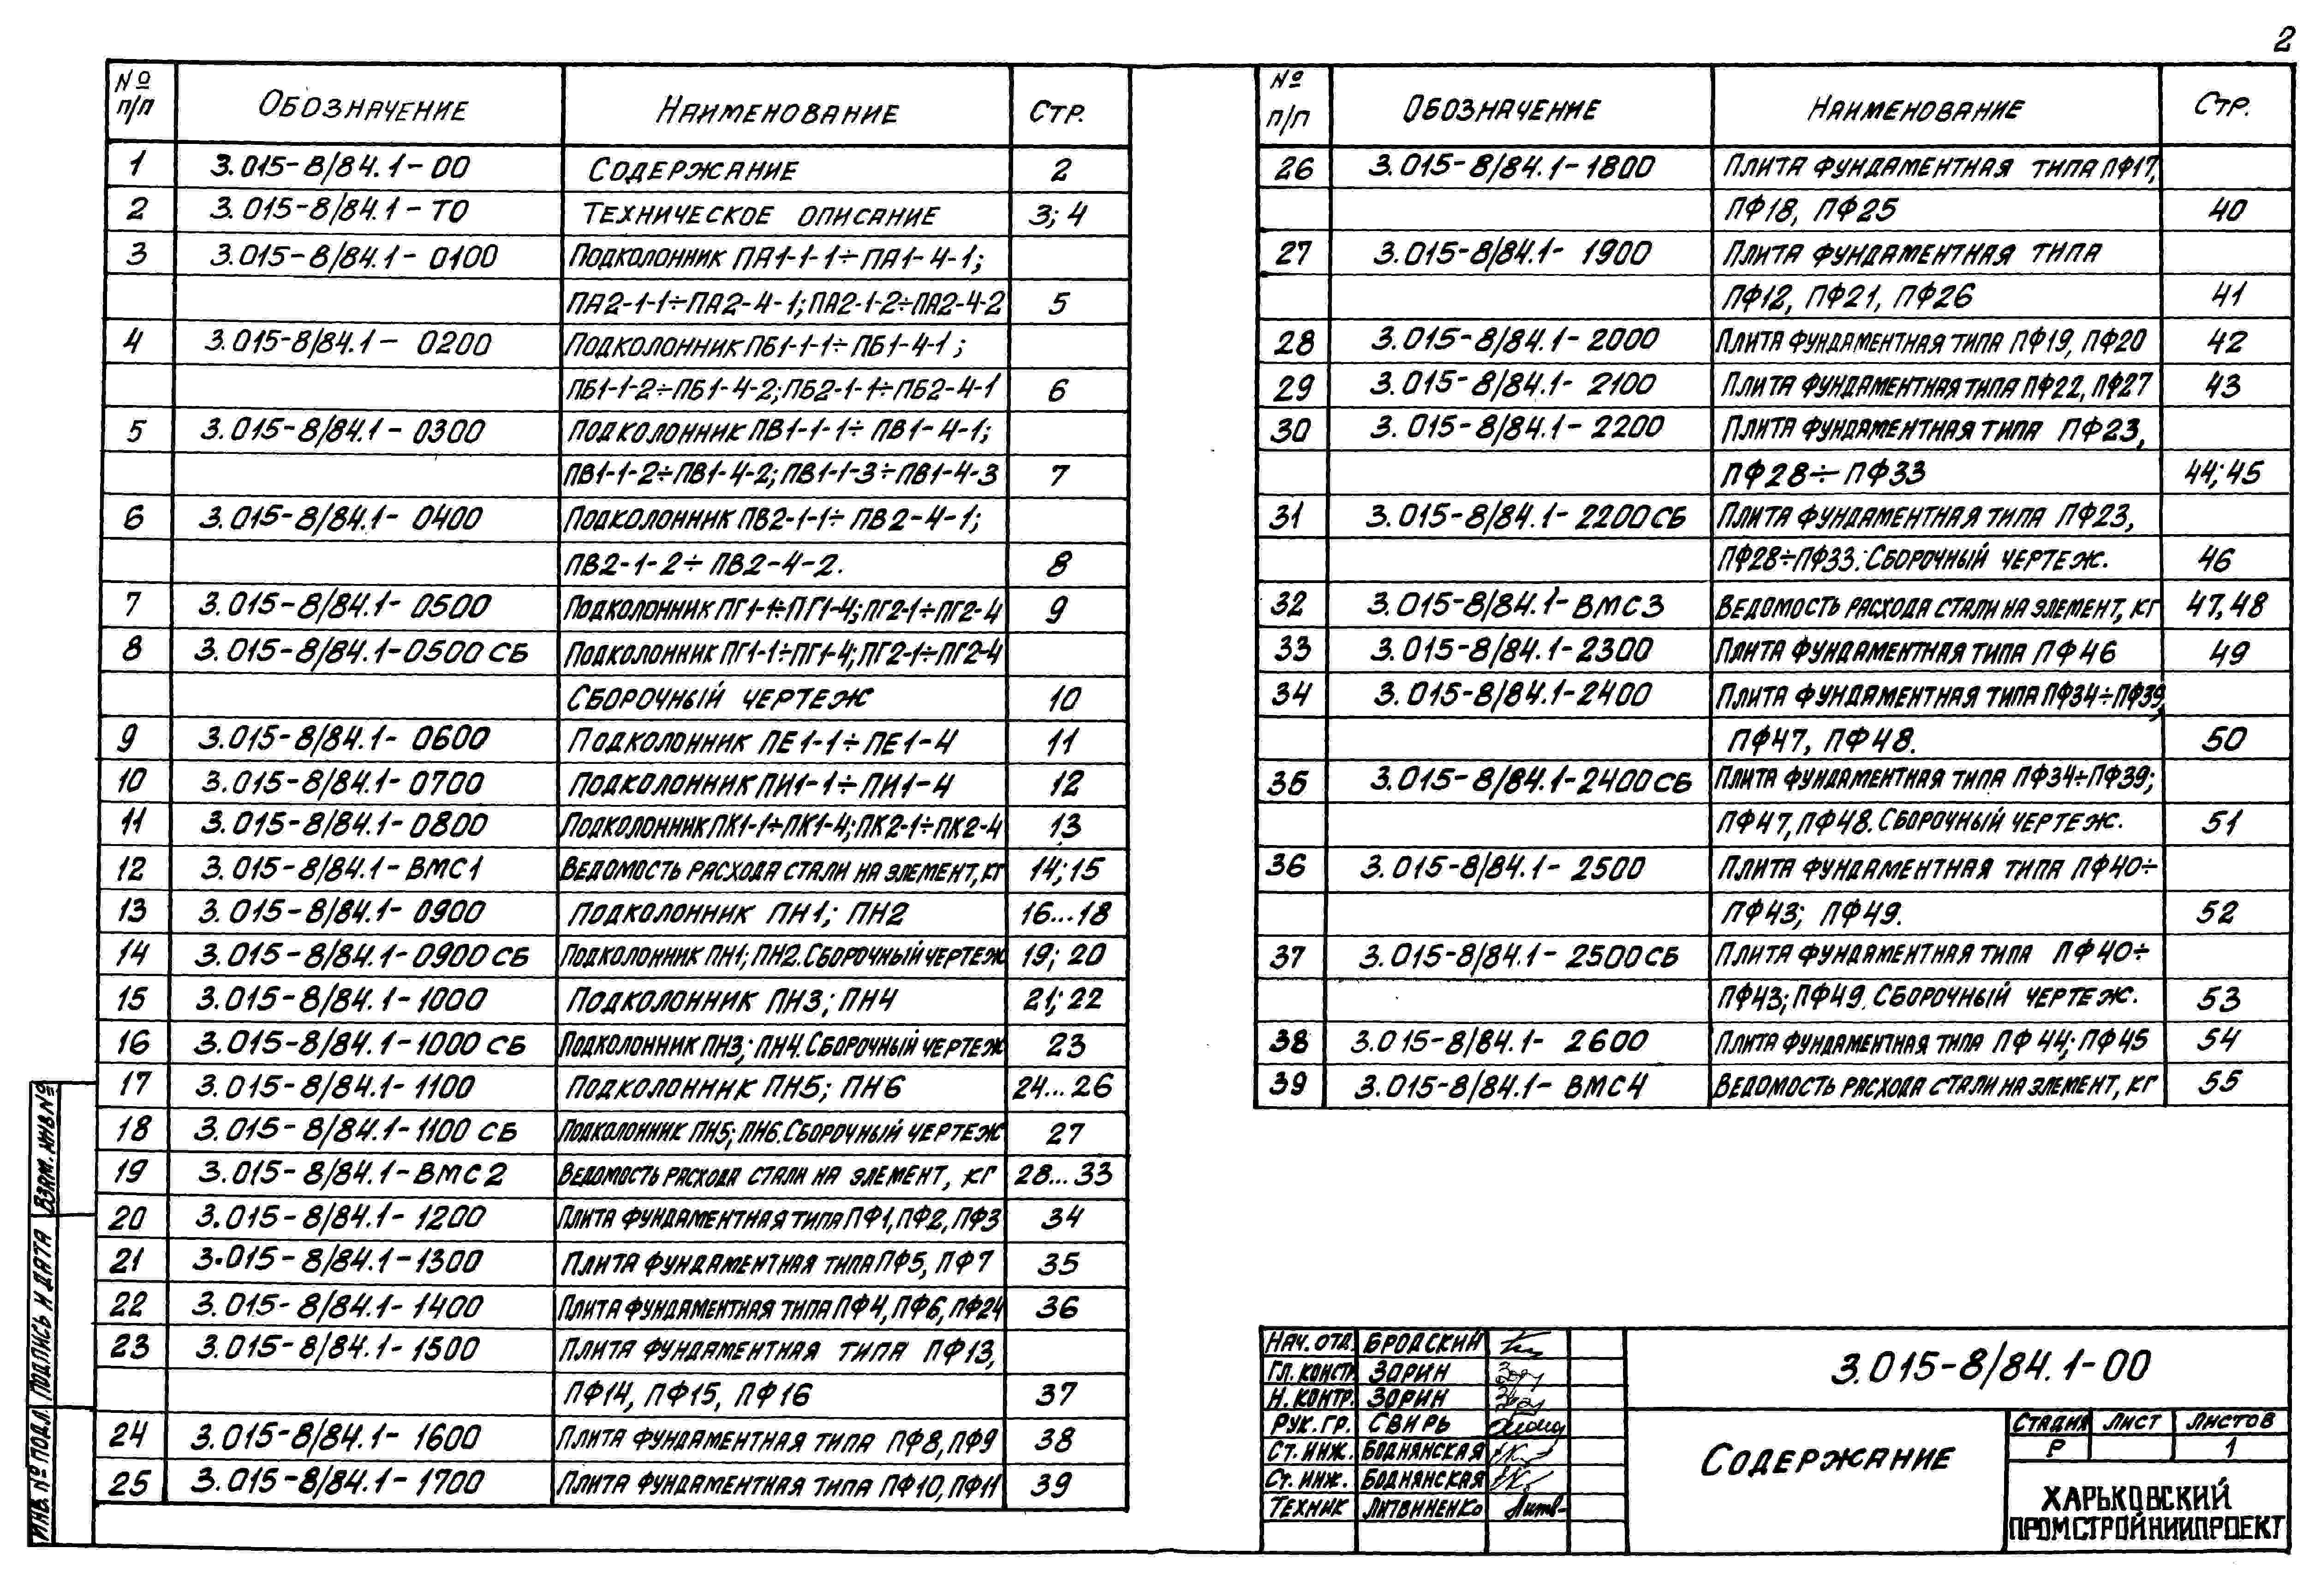 2
№ п/п ОБОЗНАЧЕНИЕ НАИМЕНОВАНИЕ СТР.
1 3.015-8/84.1-00 СОДЕРЖАНИЕ 2
2 3.015-8/84.1-ТО ТЕХНИЧЕСКОЕ ОПИСАНИЕ 3; 4
3 3.015-8/84.1-0100 ПОДКОЛОННИК ПА1-1-1÷ПА1-4-1;
ПА2-1-1÷ПА2-4-1; ПА2-1-2÷ПА2-4-2 5
4 3.015-8/84.1-0200 ПОДКОЛОННИК ПБ1-1-1÷ПБ1-4-1;
ПБ1-1-2÷ПБ1-4-2; ПБ2-1-1÷ПБ2-4-1 6
5 3.015-8/84.1-0300 ПОДКОЛОННИК ПВ1-1-1÷ПВ1-4-1;
ПВ1-1-2÷ПВ1-4-2; ПВ1-1-3÷ПВ1-4-3 7
6 3.015-8/84.1-0400 ПОДКОЛОННИК ПВ2-1-1÷ПВ2-4-1;
ПВ2-1-2÷ПВ2-4-2. 8
7 3.015-8/84.1-0500 ПОДКОЛОННИК ПГ1-1÷ПГ1-4; ПГ2-1÷ПГ2-4 9
8 3.015-8/84.1-0500 СБ ПОДКОЛОННИК ПГ1-1÷ПГ1-4; ПГ2-1÷ПГ2-4
СБОРОЧНЫЙ ЧЕРТЕЖ 10
9 3.015-8/84.1-0600 ПОДКОЛОННИК ПЕ1-1÷ПЕ1-4 11
10 3.015-8/84.1-0700 ПОДКОЛОННИК ПИ1-1÷ПИ1-4 12
11 3.015-8/84.1-0800 ПОДКОЛОННИК ПК1-1÷ПК1-4; ПК2-1÷ПК2-4 13
12 3.015-8/84.1-ВМС1 ВЕДОМОСТЬ РАСХОДА СТАЛИ НА ЭЛЕМЕНТ, КГ 14; 15
13 3.015-8/84.1-0900 ПОДКОЛОННИК ПН1; ПН2 16...18
14 3.015-8/84.1-0900 СБ ПОДКОЛОННИК ПН1; ПН2. СБОРОЧНЫЙ ЧЕРТЕЖ 19; 20
15 3.015-8/84.1-1000 ПОДКОЛОННИК ПН3; ПН4 21; 22
16 3.015-8/84.1-1000 СБ ПОДКОЛОННИК ПН3; ПН4. СБОРОЧНЫЙ ЧЕРТЕЖ 23
17 3.015-8/84.1-1100 ПОДКОЛОННИК ПН5; ПН6 24...26
18 3.015-8/84.1-1100 СБ ПОДКОЛОННИК ПН5; ПН6. СБОРОЧНЫЙ ЧЕРТЕЖ 27
19 3.015-8/84.1-ВМС2 ВЕДОМОСТЬ РАСХОДА СТАЛИ НА ЭЛЕМЕНТ, КГ 28...33
20 3.015-8/84.1-1200 ПЛИТА ФУНДАМЕНТНАЯ ТИПА ПФ1, ПФ2, ПФ3 34
21 3.015-8/84.1-1300 ПЛИТА ФУНДАМЕНТНАЯ ТИПА ПФ5, ПФ7 35
22 3.015-8/84.1-1400 ПЛИТА ФУНДАМЕНТНАЯ ТИПА ПФ4, ПФ6, ПФ24 36
23 3.015-8/84.1-1500 ПЛИТА ФУНДАМЕНТНАЯ ТИПА ПФ13,
ПФ14, ПФ15, ПФ16 37
24 3.015-8/84.1-1600 ПЛИТА ФУНДАМЕНТНАЯ ТИПА ПФ8, ПФ9 38
25 3.015-8/84.1-1700 ПЛИТА ФУНДАМЕНТНАЯ ТИПА ПФ10, ПФ11 39
№ п/п ОБОЗНАЧЕНИЕ НАИМЕНОВАНИЕ СТР.
26 3.015-8/84.1-1800 ПЛИТА ФУНДАМЕНТНАЯ ТИПА ПФ17,
ПФ18, ПФ25 40
27 3.015-8/84.1-1900 ПЛИТА ФУНДАМЕНТНАЯ ТИПА
ПФ12, ПФ21, ПФ26 41
28 3.015-8/84.1-2000 ПЛИТА ФУНДАМЕНТНАЯ ТИПА ПФ19, ПФ20 42
29 3.015-8/84.1-2100 ПЛИТА ФУНДАМЕНТНАЯ ТИПА ПФ22, ПФ27 43
30 3.015-8/84.1-2200 ПЛИТА ФУНДАМЕНТНАЯ ТИПА ПФ23,
ПФ28÷ПФ33 44; 45
31 3.015-8/84.1-2200 СБ ПЛИТА ФУНДАМЕНТНАЯ ТИПА ПФ23,
ПФ28÷ПФ33. СБОРОЧНЫЙ ЧЕРТЕЖ. 46
32 3.015-8/84.1-ВМС3 ВЕДОМОСТЬ РАСХОДА СТАЛИ НА ЭЛЕМЕНТ, КГ 47, 48
33 3.015-8/84.1-2300 ПЛИТА ФУНДАМЕНТНАЯ ТИПА ПФ46 49
34 3.015-8/84.1-2400 ПЛИТА ФУНДАМЕНТНАЯ ТИПА ПФ34÷ПФ39,
ПФ47, ПФ48. 50
35 3.015-8/84.1-2400 СБ ПЛИТА ФУНДАМЕНТНАЯ ТИПА ПФ34÷ПФ39;
ПФ47, ПФ48. СБОРОЧНЫЙ ЧЕРТЕЖ. 51
36 3.015-8/84.1-2500 ПЛИТА ФУНДАМЕНТНАЯ ТИПА ПФ40÷
ПФ43; ПФ49. 52
37 3.015-8/84.1-2500 СБ ПЛИТА ФУНДАМЕНТНАЯ ТИПА ПФ40÷
ПФ43; ПФ49. СБОРОЧНЫЙ ЧЕРТЕЖ. 53
38 3.015-8/84.1-2600 ПЛИТА ФУНДАМЕНТНАЯ ТИПА ПФ44; ПФ45 54
39 3.015-8/84.1-ВМС4 ВЕДОМОСТЬ РАСХОДА СТАЛИ НА ЭЛЕМЕНТ, КГ 55
ИНВ. № ПОДЛ. ПОДПИСЬ И ДАТА ВЗАМ. ИНВ №
НАЧ. ОТД. БРОДСКИЙ
ГЛ. КОНСТР. ЗОРИН
Н. КОНТР. ЗОРИН
РУК. ГР. СВИРЬ
СТ. ИНЖ. БОДНЯНСКАЯ
СТ. ИНЖ. БОДНЯНСКАЯ
ТЕХНИК ЛИТВИНЕНКО
3.015-8/84.1-00
СОДЕРЖАНИЕ
СТАДИЯ ЛИСТ ЛИСТОВ
Р 1
ХАРЬКОВСКИЙ
ПРОМСТРОЙНИИПРОЕКТ